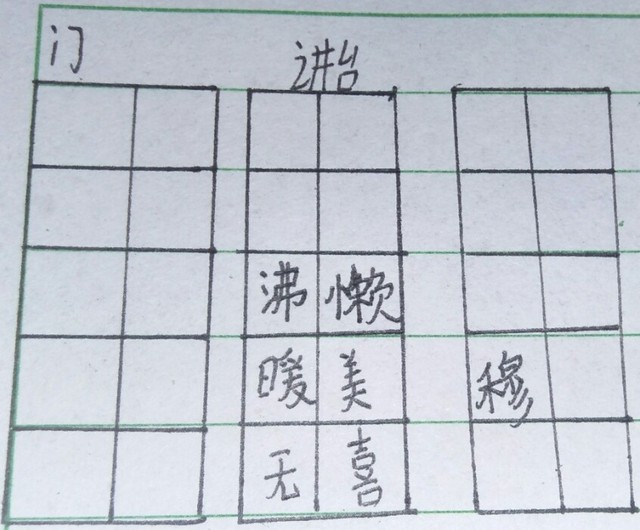 门 讲台
沸 懒
暖 美 穆
无 喜